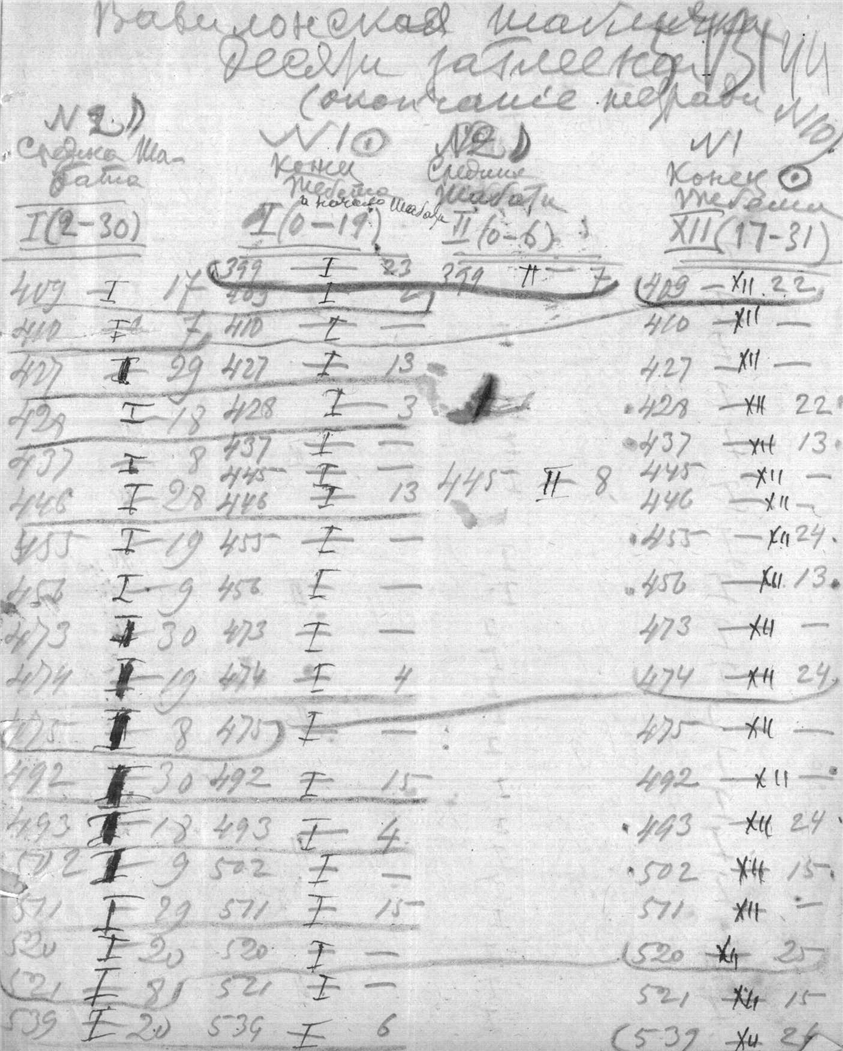 Вавилонская табличка
десяти затмений
(окончание тетради №10)
№2) №1 ☉ №2) №1
Средина Ша- Конец Средина Конец ☉
бата Тебета Шабата Тебета
и начало Шабата
I (2-30) I (0-19) II (0-6) XII (17-31)
399 — I — 23 399 II — 7
409 — I 17 409 I 2 409 — XII. 22
410 I 7 410 — I — 410 — XII —
427 I 29 427 I 13 427 — XII —
428 I — 18 428 I — 3 428 — XII 22
437 I 8 437 — I — 437 XII 13
445 — I — 445 II — 8 445 — XII —
446 I — 28 446 I 13 446 — XII —
455 I — 19 455 I — 455 — XII 24
456 I — 9 456 I — 456 — XII 13
473 I — 30 473 I — 473 — XII —
474 I — 19 474 I 4 474 — XII 24
475 I 8 475 I — 475 — XII —
492 I — 30 492 I 15 492 — XII —
493 I — 18 493 I 4 493 — XII 24
502 I — 9 502 I — 502 XII 15
511 I 29 511 I 15 511 XII —
520 I 20 520 I — 520 XII 25
521 I 8 521 I — 521 XII 15
539 I — 20 539 I 6 539 XII 24